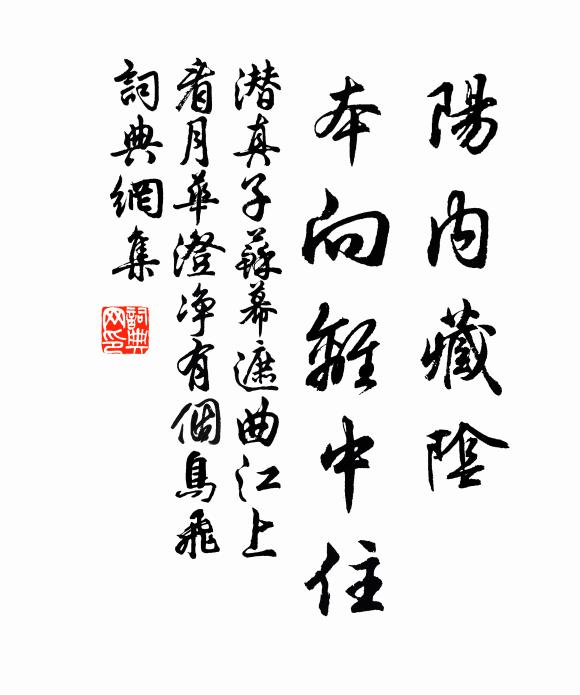 陽内藏陰
本向離中住
潛真子蘇幕遮曲江上
看月華澄净有個鳥飛
詞典網集
詞典网印